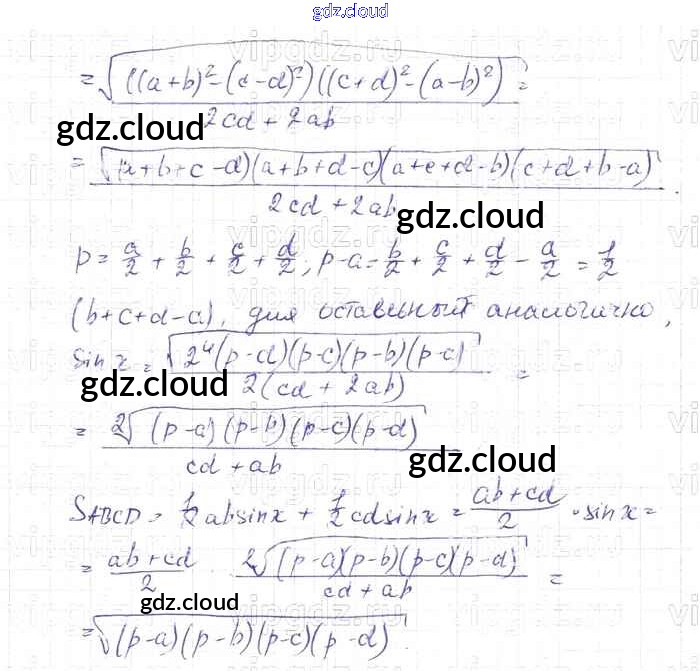 gdz.cloud
= √((a+b)²-(c-d)²)((c+d)²-(a-b)²) / 2cd+2ab =
gdz.cloud
= √(a+b+c-d)(a+b+d-c)(a+c+d-b)(c+d+b-a) / 2cd+2ab.
gdz.cloud
p = a/2 + b/2 + c/2 + d/2, p-a = b/2 + c/2 + d/2 - a/2 = 1/2
(b+c+d-a), для остальный аналогично,
sin x = √2⁴(p-d)(p-c)(p-b)(p-c) / 2(cd+2ab) =
gdz.cloud
= 2√(p-a)(p-b)(p-c)(p-d) / cd+ab
gdz.cloud
SABCD = 1/2 ab sin x + 1/2 cd sin x = ab+cd / 2 · sin x =
= ab+cd / 2 · 2√(p-a)(p-b)(p-c)(p-d) / cd+ab =
gdz.cloud
= √(p-a)(p-b)(p-c)(p-d).